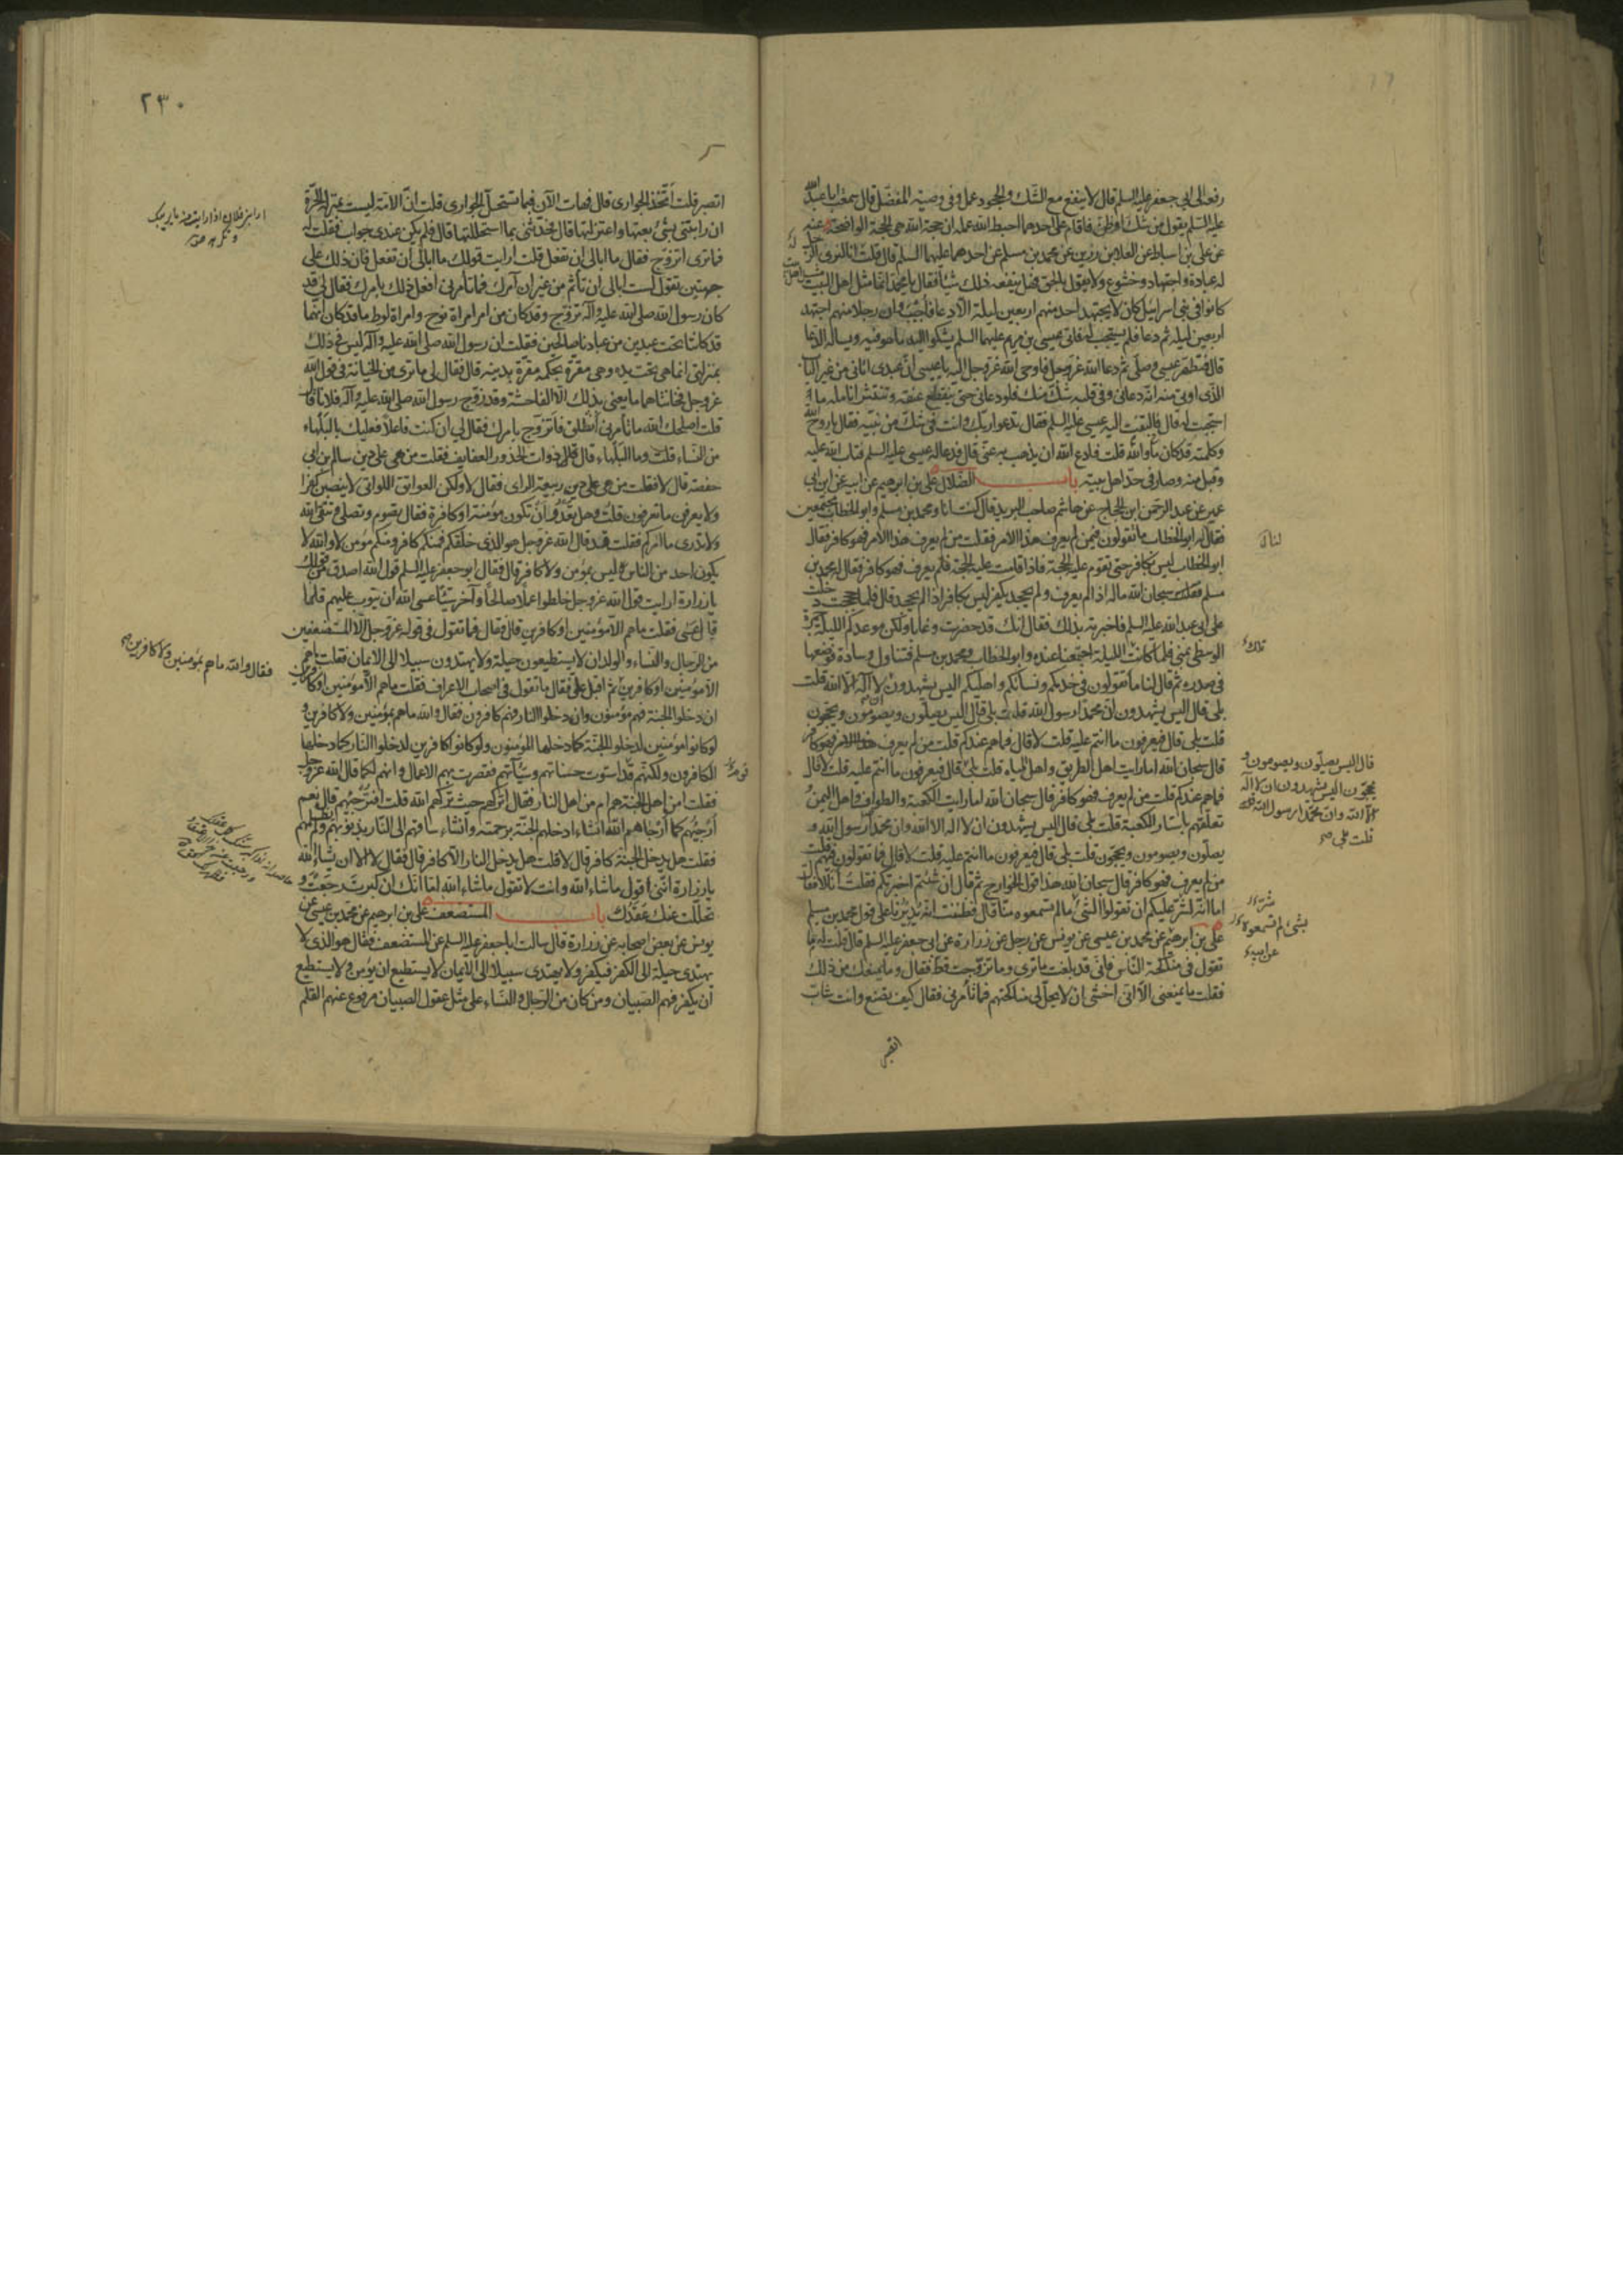 رفعه الى ابي جعفر عليه السلم قال لا ينفع مع الشك والجحود عمل وفي وصية المفضل قال سمعت ابا عبد الله
عليه السلم يقول من شك او ظن فاقام على احدهما احبط الله عمله ان حجة الله هي الحجة الواضحة عنه
عن علي بن اسباط عن العلا بن رزين عن محمد بن مسلم عن احدهما عليهما السلم قال قلت انا لنرى الرجل
له عبادة واجتهاد وخشوع ولا يقول بالحق فهل ينفعه ذلك شيئا فقال يا محمد انما مثل اهل البيت
كانوا في بني اسرائيل كان لا يجتهد احد منهم اربعين ليلة الا دعا فاجيب وان رجلا منهم اجتهد
اربعين ليلة ثم دعا فلم يستجب له فاتى عيسى بن مريم عليهما السلم يشكو اليه ما هو فيه ويساله الدعا
قال فتطهر عيسى وصلى ثم دعا الله عز وجل فاوحى الله عز وجل اليه يا عيسى ان عبدي اتاني من غير الباب
الذي اوتى منه انه دعاني وفي قلبه شك منك فلو دعاني حتى ينقطع عنقه وتنتثر انامله ما
استجبت له قال فالتفت اليه عيسى عليه السلم فقال تدعو ربك وانت في شك من نبيه فقال يا روح الله
وكلمته قد كان والله ما قلت فادع الله ان يذهب به عني قال فدعا له عيسى عليه السلم فتاب الله عليه
وقبل منه وصار في حد اهل بيته باب الضلال علي بن ابرهيم عن ابيه عن ابن ابي
عمير عن عبد الرحمن ابن الحجاج عن هاشم صاحب البريد قال كنت انا ومحمد بن مسلم وابو الخطاب مجتمعين
فقال له ابو الخطاب ما تقولون فيمن لم يعرف هذا الامر فقلت من لم يعرف هذا الامر فهو كافر فقال
ابو الخطاب ليس بكافر حتى تقوم عليه الحجة فاذا قامت عليه الحجة فلم يعرف فهو كافر فقال له محمد بن
مسلم سبحان الله ماله اذا لم يعرف ولم يجحد يكفر ليس بكافر اذا لم يجحد قال فلما حججت دخلت
على ابي عبد الله عليه السلم فاخبرته بذلك فقال انك قد حضرت وغابا ولكن موعدكم الليلة الجمرة
الوسطى بمنى فلما كانت الليلة اجتمعنا عنده وابو الخطاب ومحمد بن مسلم فتناول وسادة فوضعها
في صدره ثم قال لنا ما تقولون في خدمكم ونسائكم واهليكم اليس يشهدون لا اله الا الله قلت
بلى قال اليس يشهدون ان محمدا رسول الله قلت بلى قال اليس يصلون ويصومون ويحجون
قلت بلى قال فيعرفون ما انتم عليه قلت لا قال فما هم عندكم قلت من لم يعرف هذا الامر فهو كافر
قال سبحان الله اما رايت اهل الطريق واهل المياه قلت بلى قال فيعرفون ما انتم عليه قلت لا قال
فما هم عندكم قلت من لم يعرف فهو كافر قال سبحان الله اما رايت الكعبة والطواف واهل اليمن و
تعلقهم باستار الكعبة قلت بلى قال اليس يشهدون ان لا اله الا الله وان محمدا رسول الله و
يصلون ويصومون ويحجون قلت بلى قال فيعرفون ما انتم عليه قلت لا قال فما تقولون فيهم قلت
من لم يعرف فهو كافر قال سبحان الله هذا قول الخوارج ثم قال ان شئتم اخبرتكم فقلت انا لا فقال
اما انه لشر عليكم ان تقولوا الشيء ما لم تسمعوه منا قال فظننت انه يديرنا على قول محمد بن مسلم
علي بن ابرهيم عن محمد بن عيسى عن يونس عن رجل عن زرارة عن ابي جعفر عليه السلم قال قلت له فما
تقول في مناكحة الناس فاني قد بلغت ما ترى وما تزوجت قط فقال وما يمنعك من ذلك
فقلت ما يمنعني الا انني اخشى ان لا يحل لي مناكحتهم فما تامرني فقال كيف تصنع وانت شاب
اتصبر
لنا
تلك
قال اليس يصلون ويصومون و
يحجون اليس يشهدون ان لا اله
الا الله وان محمدا رسول الله
قلت بلى صح
بشيء لم تسمعوه
عن ابيه
٢٣٠
اتصبر قلت اتخذ الجواري قال فهات الآن فبما تستحل الجواري قلت ان الامة ليست بمنزلة الحرة
ان رابتني بشيء بعتها واعتزلتها قال فحدثني بما استحللتها قال فلم يكن عندي جواب فقلت له
فما ترى اتزوج فقال ما ابالي ان تفعل قلت ارايت قولك ما ابالي ان تفعل فان ذلك على
جهتين تقول لست ابالي ان تاثم من غير ان آمرك فما تامرني افعل ذلك بامرك فقال لي قد
كان رسول الله صلى الله عليه وآله تزوج وقد كان من امر امراة نوح وامراة لوط ما قد كان انهما
قد كانتا تحت عبدين من عبادنا صالحين فقلت ان رسول الله صلى الله عليه وآله ليس في ذلك
بمنزلتي انما هي تحت يده وهي مقرة بحكمه مقرة بدينه قال فقال لي ما ترى من الخيانة في قول الله
عز وجل فخانتاهما ما يعني بذلك الا الفاحشة وقد زوج رسول الله صلى الله عليه وآله فلانا قال
قلت اصلحك الله ما تامرني انطلق فاتزوج بامرك فقال لي ان كنت فاعلا فعليك بالبلهاء
من النساء قلت وما البلهاء قال ذوات الخدور العفايف فقلت من هي على دين سالم بن ابي
حفصة قال لا فقلت من هي على دين ربيعة الراي فقال لا ولكن العواتق اللواتي لا ينصبن كفرا
ولا يعرفن ما تعرفون قلت وهل تعدو ان تكون مؤمنة او كافرة فقال تصوم وتصلي وتتقي الله
ولا تدري ما امركم فقلت قد قال الله عز وجل هو الذي خلقكم فمنكم كافر ومنكم مؤمن لا والله لا
يكون احد من الناس ليس بمؤمن ولا كافر قال فقال ابو جعفر عليه السلم قول الله اصدق من قولك
يا زرارة ارايت قول الله عز وجل خلطوا عملا صالحا وآخر سيئا عسى الله ان يتوب عليهم فلما
قال عسى فقلت ما هم الا مؤمنين او كافرين قال فقال فما تقول في قوله عز وجل الا المستضعفين
من الرجال والنساء والولدان لا يستطيعون حيلة ولا يهتدون سبيلا الى الايمان فقلت ما هم
الا مؤمنين او كافرين ثم اقبل علي فقال ما تقول في اصحاب الاعراف فقلت ما هم الا مؤمنين او كافرين
ان دخلوا الجنة فهم مؤمنون وان دخلوا النار فهم كافرون فقال والله ما هم بمؤمنين ولا كافرين و
لو كانوا مؤمنين لدخلوا الجنة كما دخلها المؤمنون ولو كانوا كافرين لدخلوا النار كما دخلها
الكافرون ولكنهم قد استوت حسناتهم وسيئآتهم فقصرت بهم الاعمال وانهم لكما قال الله عز وجل
فقلت امن اهل الجنة هم ام من اهل النار فقال اتركهم حيث تركهم الله قلت افترجئهم قال نعم
ارجئهم كما ارجاهم الله ان شاء ادخلهم الجنة برحمته وان شاء ساقهم الى النار بذنوبهم ولم يظلمهم
فقلت هل يدخل الجنة كافر قال لا قلت هل يدخل النار الا كافر قال فقال لا الا ان يشاء الله
يا زرارة انني اقول ما شاء الله وانت لا تقول ما شاء الله اما انك ان كبرت رجعت و
تحللت عنك عقدك باب المستضعف علي بن ابرهيم عن محمد بن عيسى عن
يونس عن بعض اصحابه عن زرارة قال سالت ابا جعفر عليه السلم عن المستضعف فقال هو الذي لا
يهتدي حيلة الى الكفر فيكفر ولا يهتدي سبيلا الى الايمان لا يستطيع ان يؤمن ولا يستطيع
ان يكفر فهم الصبيان ومن كان من الرجال والنساء على مثل عقول الصبيان مرفوع عنهم القلم
فقال والله ما هم بمؤمنين ولا كافرين صح